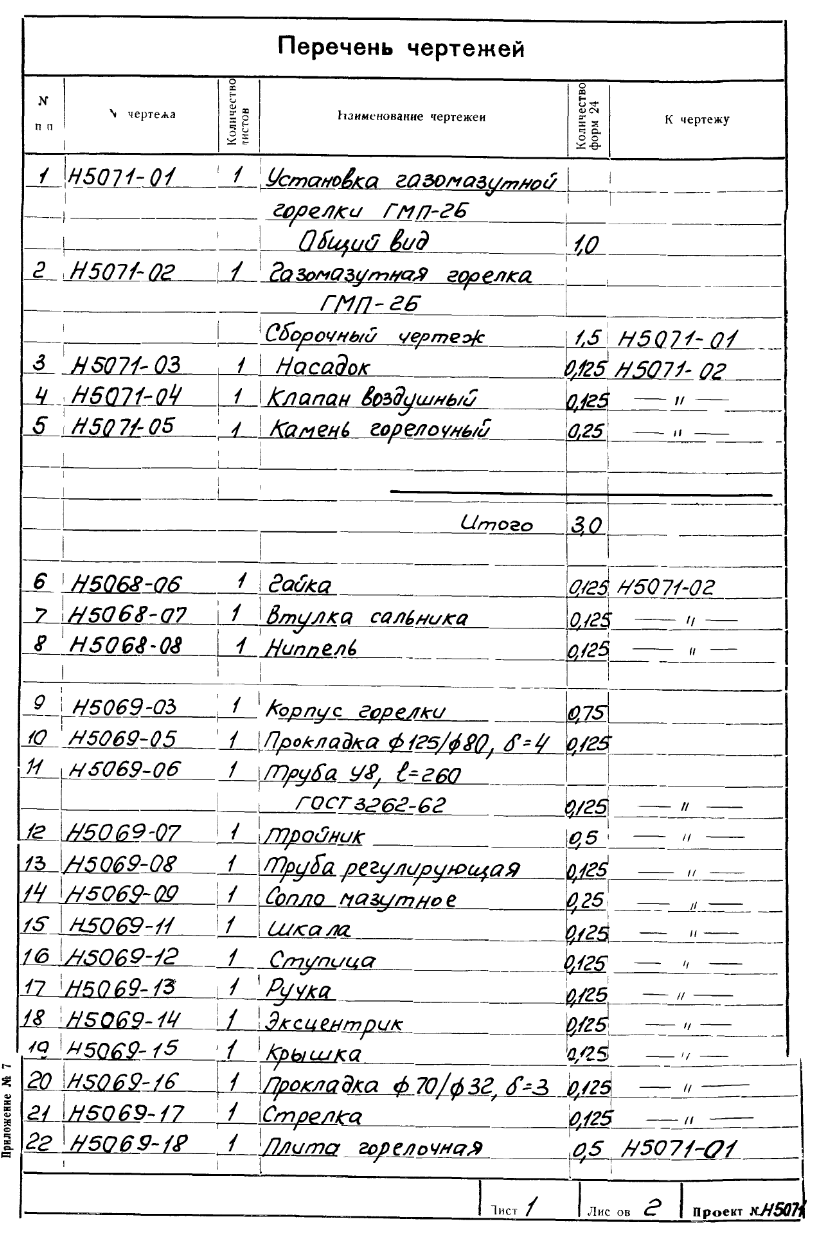 Перечень чертежей
N пп | N чертежа | Количество листов | Наименование чертежей | Количество форм 24 | К чертежу
1 Н5071-01 1 Установка газомазутной
горелки ГМП-2Б
Общий вид 1,0
2 Н5071-02 1 Газомазутная горелка
ГМП-2Б
Сборочный чертеж 1,5 Н5071-01
3 Н5071-03 1 Насадок 0,125 Н5071-02
4 Н5071-04 1 Клапан воздушный 0,125 — 〃 —
5 Н5071-05 1 Камень горелочный 0,25 — 〃 —
Итого 3,0
6 Н5068-06 1 Гайка 0,125 Н5071-02
7 Н5068-07 1 Втулка сальника 0,125 — 〃 —
8 Н5068-08 1 Ниппель 0,125 — 〃 —
9 Н5069-03 1 Корпус горелки 0,75
10 Н5069-05 1 Прокладка ф125/ф80, δ=4 0,125
11 Н5069-06 1 Труба У8, ℓ=260
ГОСТ 3262-62 0,125 — 〃 —
12 Н5069-07 1 Тройник 0,5 — 〃 —
13 Н5069-08 1 Труба регулирующая 0,125 — 〃 —
14 Н5069-09 1 Сопло мазутное 0,25 — 〃 —
15 Н5069-11 1 Шкала 0,125 — 〃 —
16 Н5069-12 1 Ступица 0,125 — 〃 —
17 Н5069-13 1 Ручка 0,125 — 〃 —
18 Н5069-14 1 Эксцентрик 0,125 — 〃 —
19 Н5069-15 1 Крышка 0,125 — 〃 —
20 Н5069-16 1 Прокладка ф70/ф32, δ=3 0,125 — 〃 —
21 Н5069-17 1 Стрелка 0,125 — 〃 —
22 Н5069-18 1 Плита горелочная 0,5 Н5071-01
Приложение № 7
Лист 1 Лис ов 2 Проект № Н5071